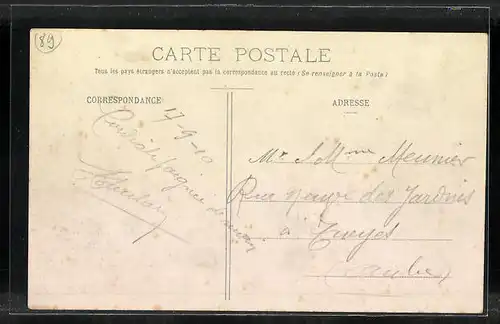 89
CARTE POSTALE
Tous les pays étrangers n'acceptent pas la correspondance au recto (Se renseigner à la Poste)
CORRESPONDANCE
ADRESSE
17-9-10
Mr & Mme Meunier
Rue Neuve des Jardins
à Troyes
(Aube)